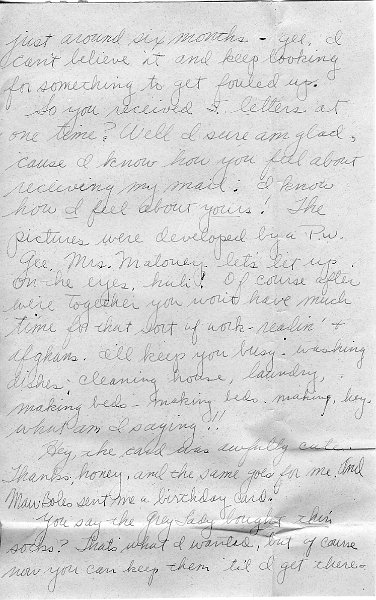 just around six months - gee, I
can't believe it and keep looking
for something to get fouled up.
So you received 5 letters at
one time? Well I sure am glad,
'cause I know how you feel about
recieving my mail: I know
how I feel about yours! The
pictures were developed by a P.W.
Gee, Mrs. Maloney, let's let up
on the eyes, huh!! Of course after
we're together you won't have much
time for that sort of work - readin' +
afghans. I'll keep you busy - washing
dishes - cleaning house, laundry,
making beds - making beds - making, hey,
what am I saying!!
Hey, the card was awfully cute.
Thanks, honey, and the same goes for me, and
Maw Boles sent me a birthday card.
You say the Grey Lady bought thin
socks? That's what I wanted, but of cause
now you can keep them 'til I get there -